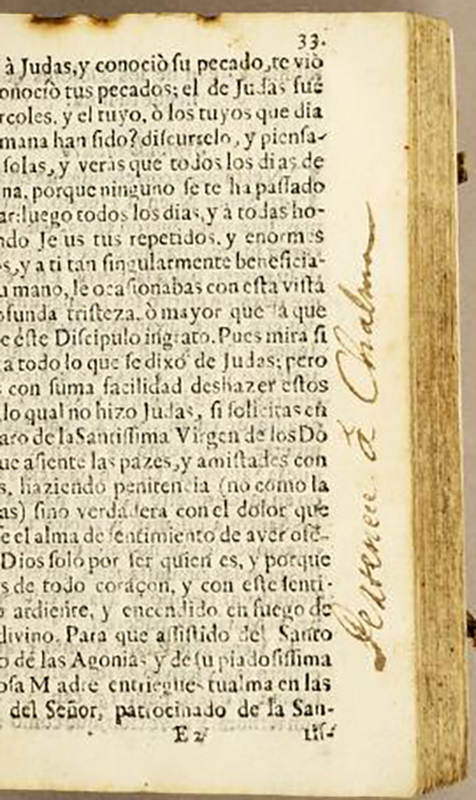 33.
à Judas, y conociò ſu pecado, te viò
onociò tus pecados; el de Judas fuè
rcoles, y el tuyo, ò los tuyos que dia
mana han ſido? diſcurrelo, y pienſa-
ſolas, y veràs que todos los dias de
na, porque ninguno ſe te ha paſſado
ar: luego todos los dias, y à todas ho-
ndo Jeſus tus repetidos, y enormes
s, y a ti tan ſingularmente beneficia-
u mano, le ocaſionabas con eſta viſtà
ofunda triſteza, ò mayor que la que
e éſte Diſcipulo ingrato. Pues mira ſi
a todo lo que ſe dixo de Judas; pero
s con ſuma facilidad deshazer eſtos
, lo qual no hizo Judas, ſi ſolicitas en
aro de la Santiſſima Virgen de los Do
ue aſiente las pazes, y amiſtades con
s, haziendo penitencia (no como la
as) ſino verdadera con el dolor que
e el alma de ſentimiento de aver ofē-
Dios ſolo por ſer quien es, y porque
s de todo coraçon, y con eſte ſenti-
o ardiente, y encendido en fuego de
divino. Para que aſſiſtido del Santo
o de las Agonias y de ſu piadoſiſſima
oſa Madre entriegues tu alma en las
del Señor, patrocinado de la San-
E 2 tiſ-
à Chalma